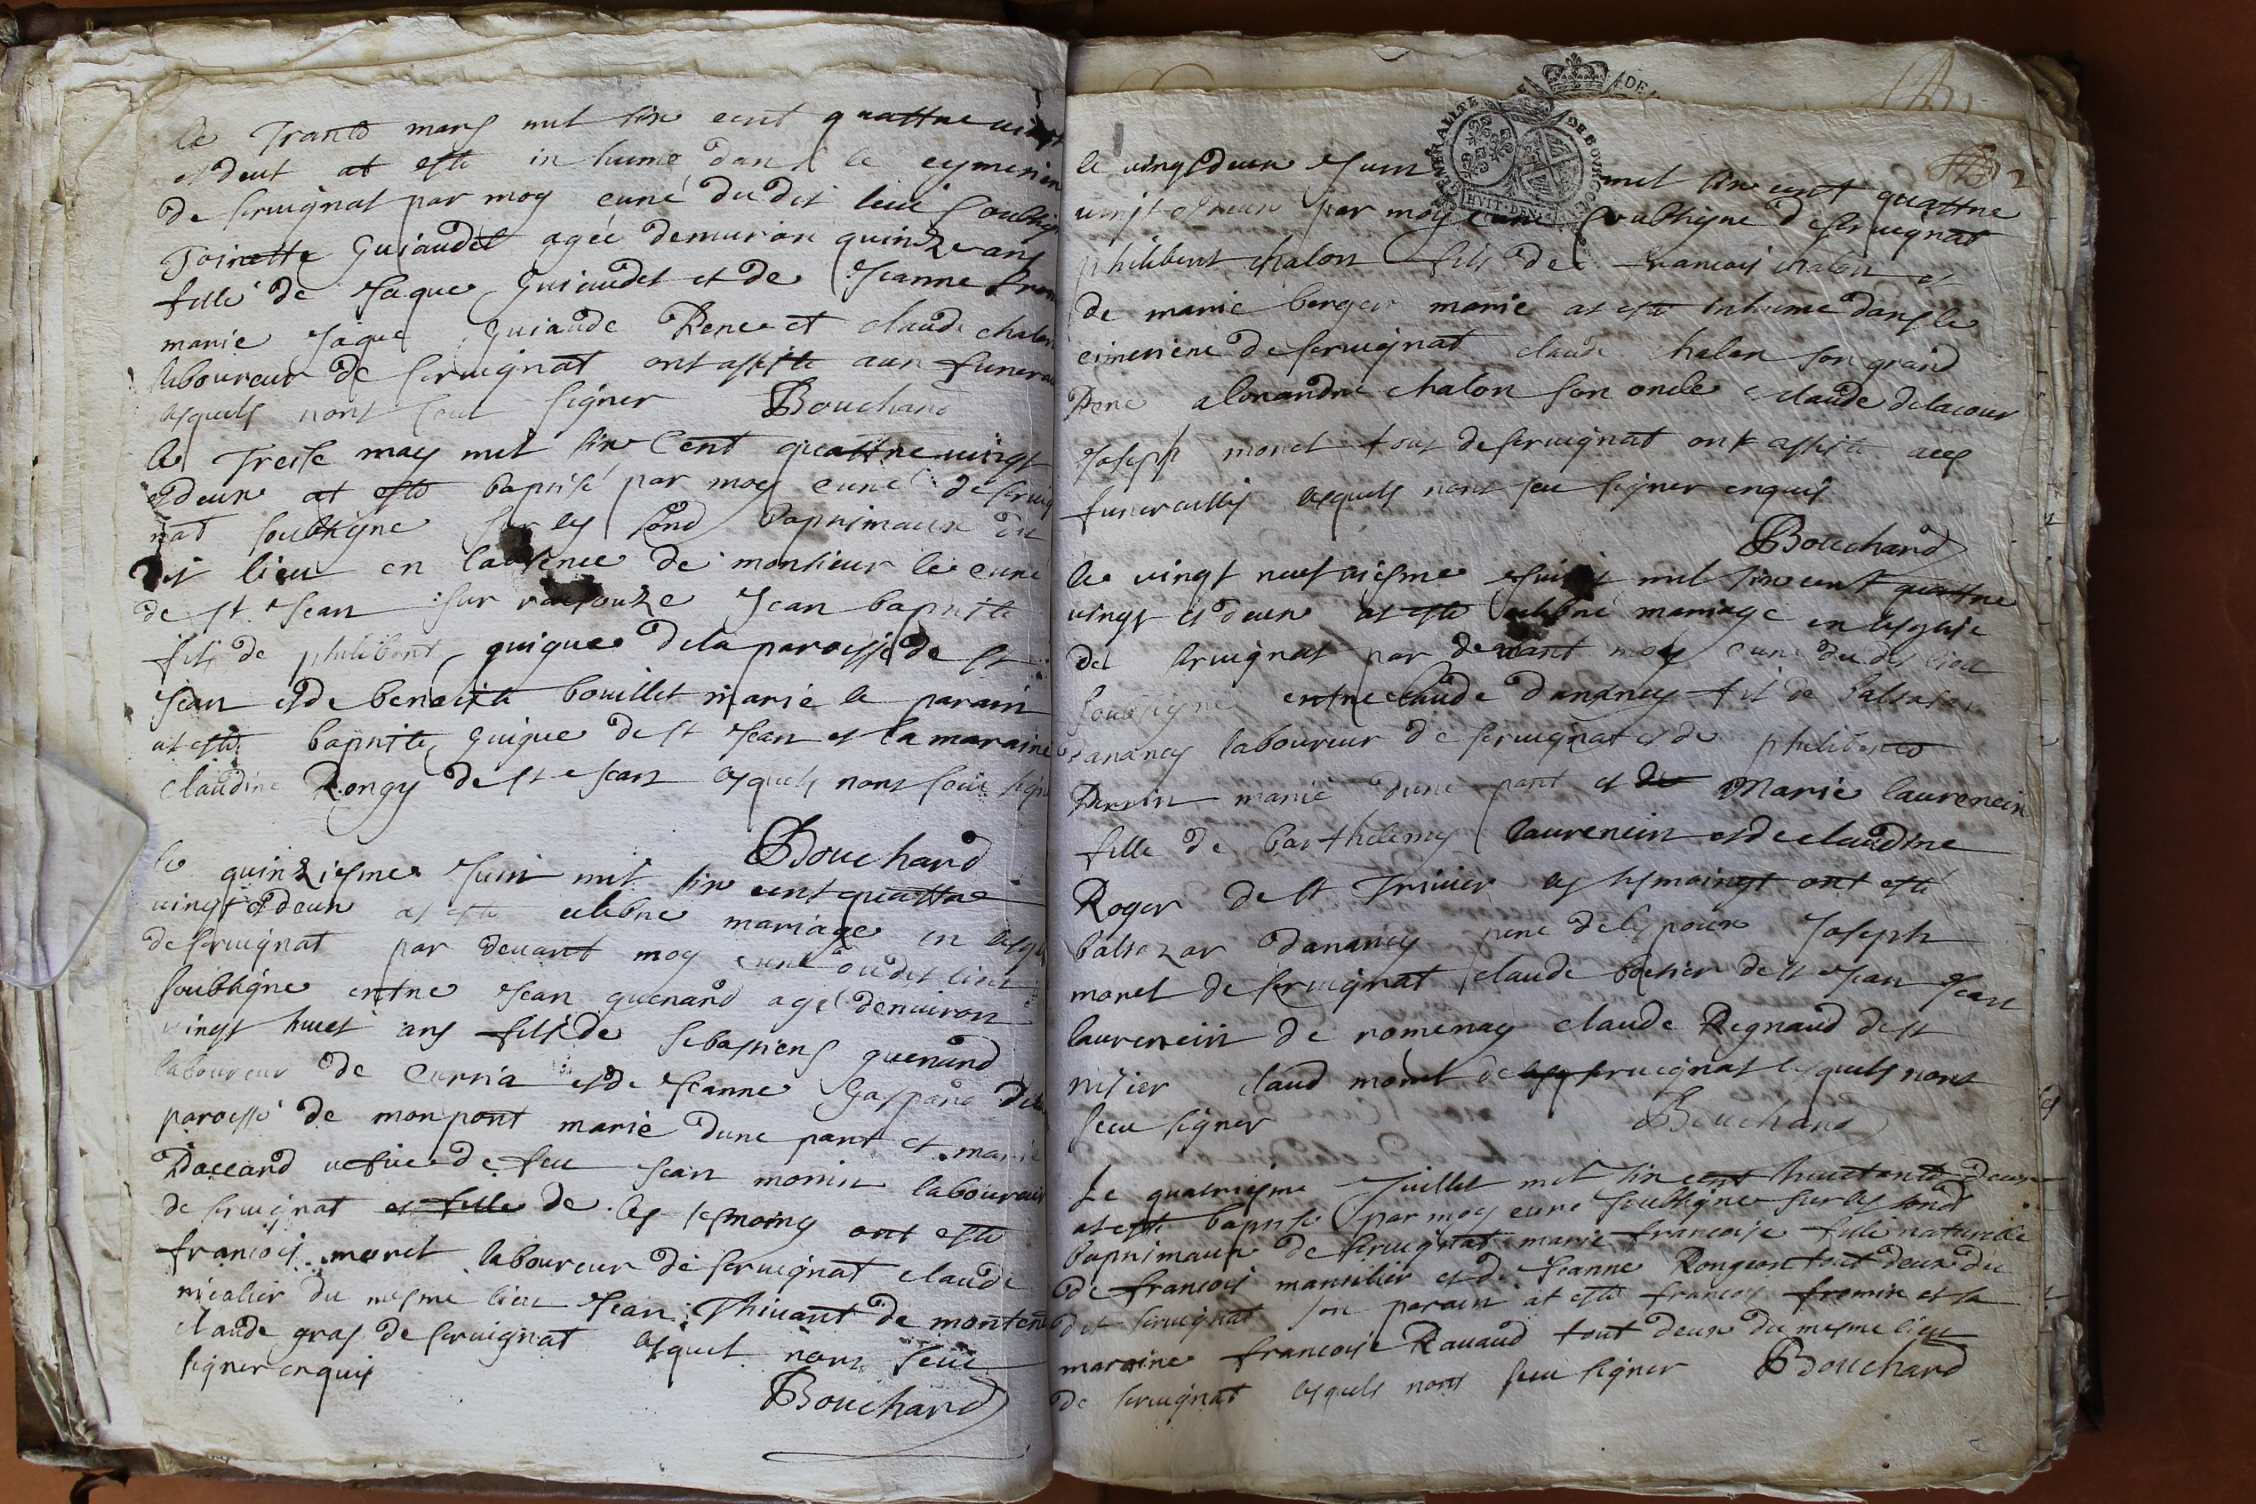 le Trante mars mil six cent quattre vingt
et deux at esté inhumé dans le cymetiere
de servignat par moy curé du dit lieu soubsigne
Toinette Guiaudet agée denuiron quinze ans
fille de Jaque Guiaudet et de Jeanne
marie Jaque Guiaude Pere et claude chalon
laboureur de servignat ont assiste aux funerailles
lesquels nont sceu signer Bouchard
le Treise may mil six Cent quattre vingt
et deux at esté baptisé par moy curé de servig
nat soubsigne sur les fond baptismaux du
dit lieu en labsence de monsieur le curé
de st Jean sur raisouze Jean baptiste
fils de philibert guigue de la paroisse de st
Jean et de benoite bouillet marié le parain
at esté baptiste guigue de st Jean et la maraine
claudine Rongy de st Jean lesquels nont sceu signer
Bouchard
le quinziesme Juin mil six cent quattre
vingt et deux at esté celebré mariage en lesglise
de servignat par devant moy curé du dit lieu
soubsigne entre Jean guenard agé denuiron
vingt huict ans fils de sebastiens guenard
laboureur de Curcia et de Jeanne Gaspard de la
paroisse de monpont marié dune part et marie
Daccard vefue de feu Jean momin laboureur
de servignat et fille de les tesmoing ont esté
francois moret laboureur de servignat claude
micalier du mesme lieu Jean Thivant de
claude gras de servignat lesquel nont sceu
signer enquis
Bouchard
GENERALITE DE BOURGOGNE
HVIT DEN
le vingt deux Juin mil six cent quattre
vingt et deux par moy curé soubsigne de servignat
philibert chalon fils de francois chalon et
de marie berger marié at esté inhume dans le
cimetiere de servignat claude chalon son grand
Pere alexandre chalon son oncle claude delacour
Joseph moret tous de servignat ont assisté aux
funerailles lesquels nont sceu signer enquis
Bouchard
le vingt neufviesme Juin mil six cent quattre
vingt et deux at esté celebré mariage en lesglise
de servignat par devant moy curé du dit lieu
soubsigne entre claude dananey fils de balsasar
dananey laboureur de servignat et de philiberte
Perrin marié dune part et de Marie laurencin
fille de barthelemy laurencin et de claudine
Roger de st Trivier les tesmoingt ont esté
balsazar dananey pere de lespoux Joseph
moret de servignat claude bochier de st Jean Jean
laurencin de romenay claude Regnaud de st
nisier claud moret de servignat lesquels nont
sceu signer Bouchard
Le quatriesme Juillet mil six cent huictante deux
at esté baptisé par moy curé soubsigne sur les fond
baptismaux de servignat marie francoise fille naturelle
de francois mansilier et de Jeanne Rongeon tout deux du
dit servignat son parain at esté francois fromin et la
maraine francoise Ravaud tout deux du mesme lieu
de servignat lesquels nont sceu signer Bouchard